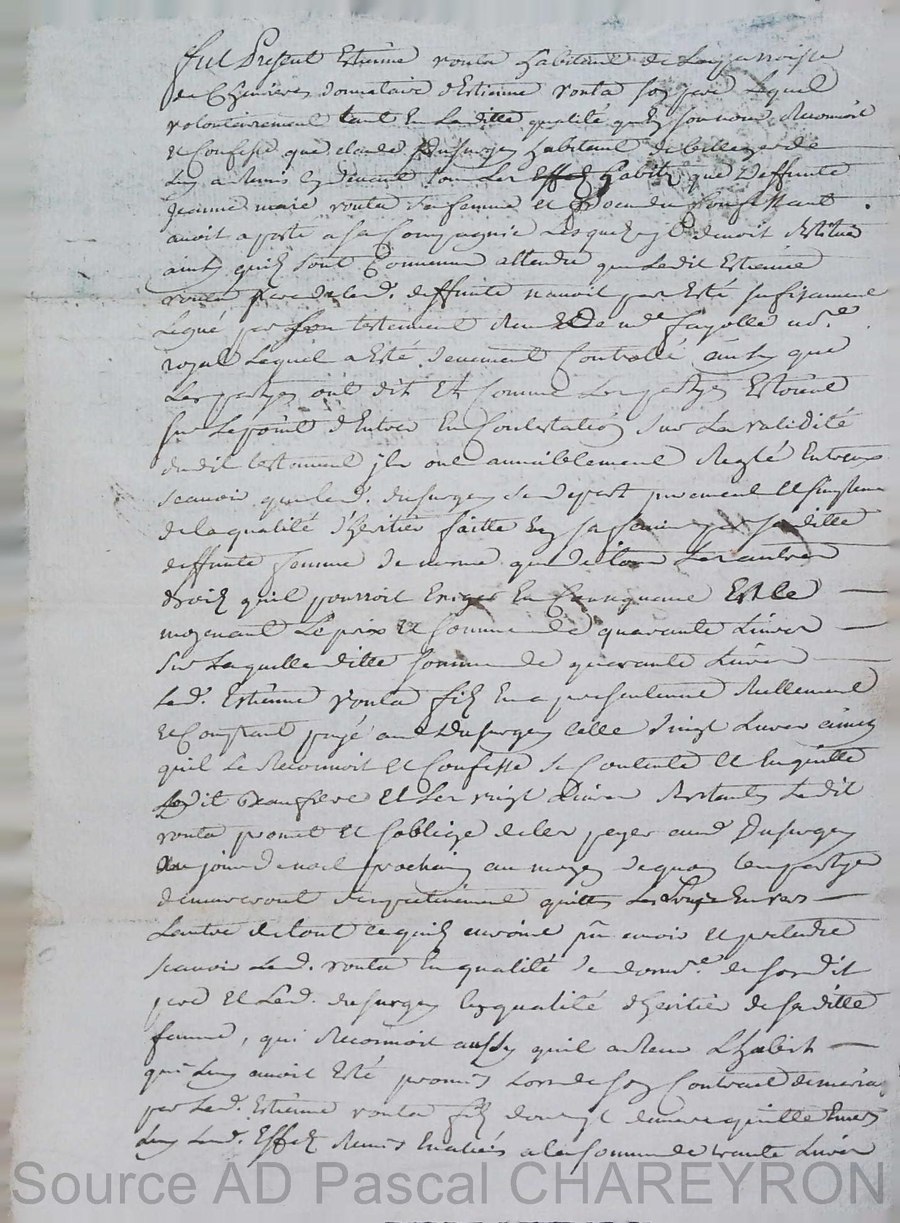 Fut Present Estienne vouta habitant de la parroisse
de Chenieres donnataire d'Estienne vouta son pere Lequel
volontairement tant En La ditte qualité qu'En son nom Reconnoit
Et Confesse que claude Dusurgey habitant de bellegarde
Luy a Remis cy devant tous Les habits que Deffunte
Jeanne marie vouta sa femme Et
avoit aporte a sa Compagnie Lesquels il devoit Restitué
ainsy qu'ils sont Convenus attendu que Ledit Estienne
vouta pere de lad. deffunte n'avoit pas Esté sufisament
Legué par son testament Receu De me fayolle no.re
royal Lequel a Esté deuement Controllé ainsy que
Les partyes ont dit Et Comme Les partyes Estoient
sur Le point d'Entrer En Contestation sur La validité
dudit testament ils ont amiablement Reglé Entreux
scavoir que led. dusurgey se depart purement Et simplem
de la qualité d'heritier faitte En sa faveur par sa ditte
deffunte femme de meme que de tous Les autres
droits qu'il pourroit Exiger En Consequence Et Ce
moyenant Le prix Et somme de quarante Livres
sur Laquelle ditte somme de quarante Livres
Led. Estienne vouta fils En a presentement Réellement
Et Comptant payé aud Dusurgey Celle de vingt Livres ainsy
qu'il Le Reconnoit Et Confesse se Contente Et En quitte
Ledit Beaufrere Et Les vingt Livres Restantes Ledit
vouta promet Et s'oblige de les payer aud Dusurgey
au jour de noel prochain au moyen de quoy les partyes
demeureront Respectivement quittes Les Unes Envers
Lautre de tout ce qu'ils auroient pu avoir Et pretendre
scavoir Led. vouta En qualité de donnre de sondit
pere Et Led. dusurgey En qualité d'heritier de sa ditte
femme, qui Reconnoit aussy qu'il a Receu L'habit
qui Luy avoit Esté promis Lors de son Contract de maria
par Led. Estienne vouta fils dont il demeure quitte Envers
Luy Led. Effets Remis Evalués a la somme de trante Livres
Source AD Pascal CHAREYRON